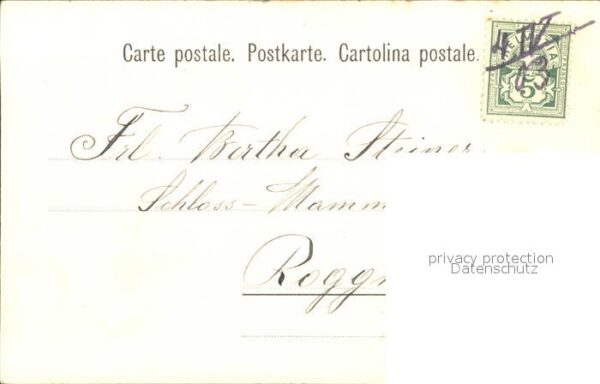 Carte postale. Postkarte. Cartolina postale.
HELVETIA
4 IV
03
5
Frl. Bertha Steiner
Schloss-Mamm
privacy protection
Datenschutz
Rogg